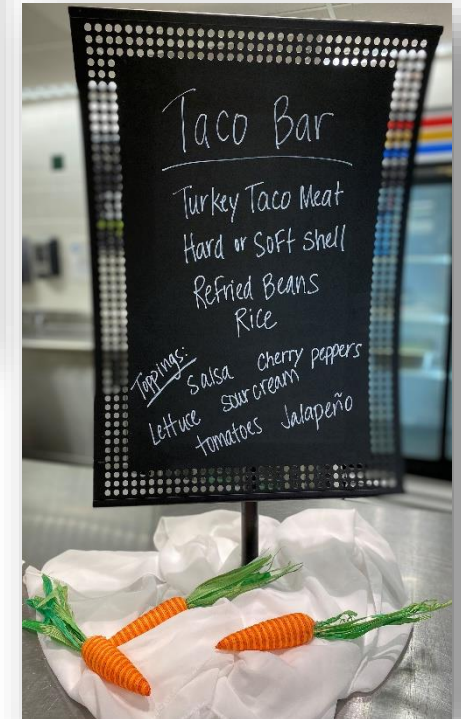 Taco Bar
Turkey Taco Meat
Hard or Soft Shell
Refried Beans
Rice
Toppings:
Salsa cherry peppers
Lettuce sour cream
tomatoes Jalapeño